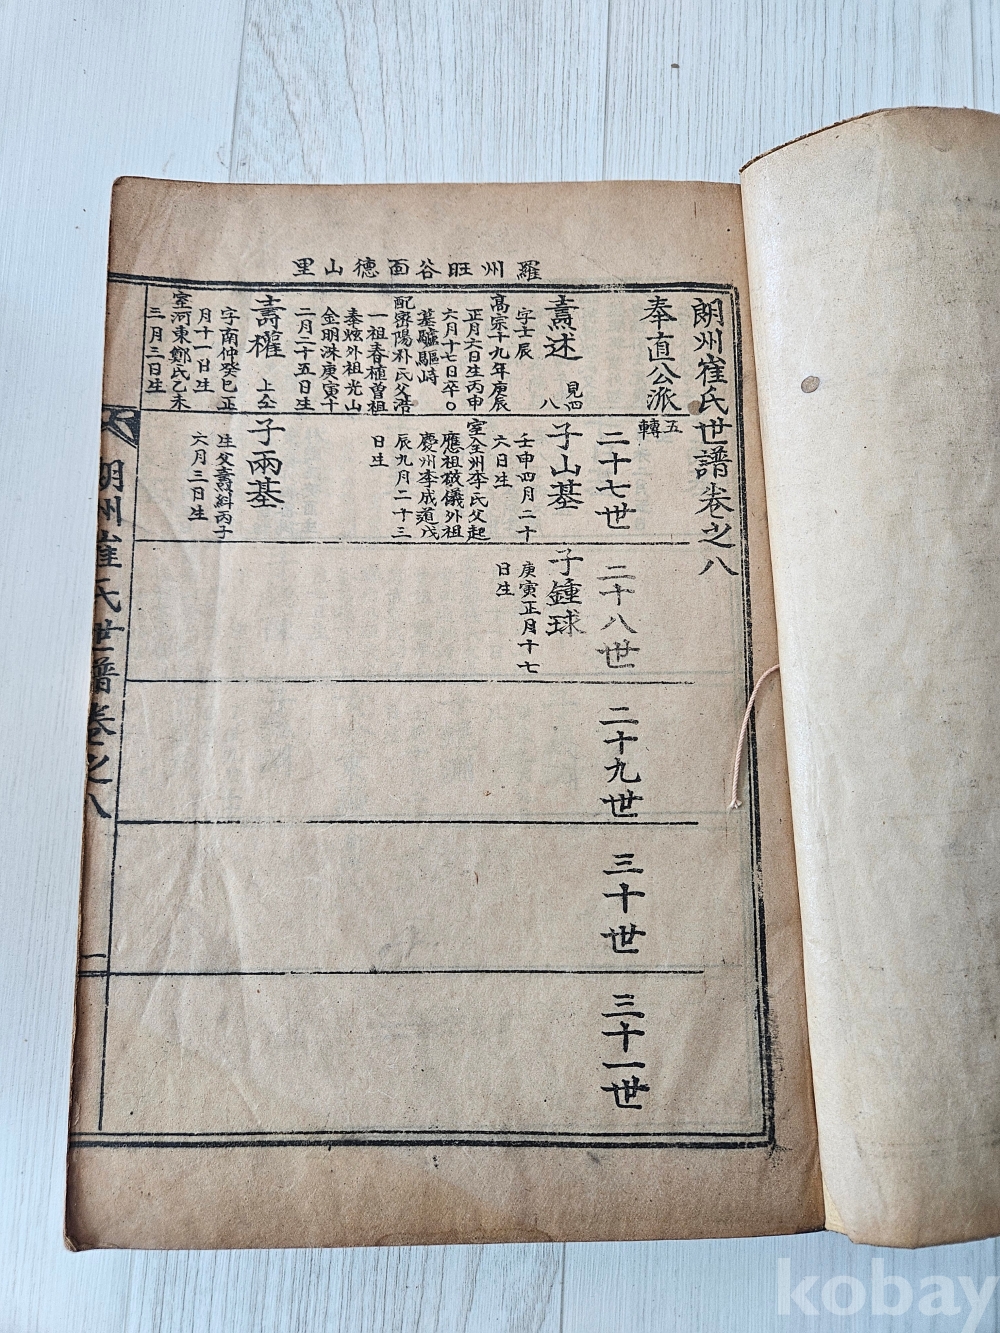 羅州旺谷面德山里
朗州崔氏世譜卷之八
奉直公派
五
轉
二十七世
二十八世
二十九世
三十世
三十一世
述
見四
八
字壬辰
高宗十九年庚辰
正月六日生丙申
六月十七日卒○
墓驢驅峙
配密陽朴氏父浩
一祖春植曾祖
奉炫外祖光山
金明洙庚寅十
二月二十五日生
子山基
壬申四月二十
六日生
室全州李氏父起
應祖敍儀外祖
慶州李成道戊
辰九月二十三
日生
子鍾球
庚寅正月十七
日生
壽權
上仝
字南仲癸巳正
月十一日生
室河東鄭氏乙未
三月三日生
子兩基
生父壽斜丙子
六月三日生
朗州崔氏世譜卷之八
一
kobay